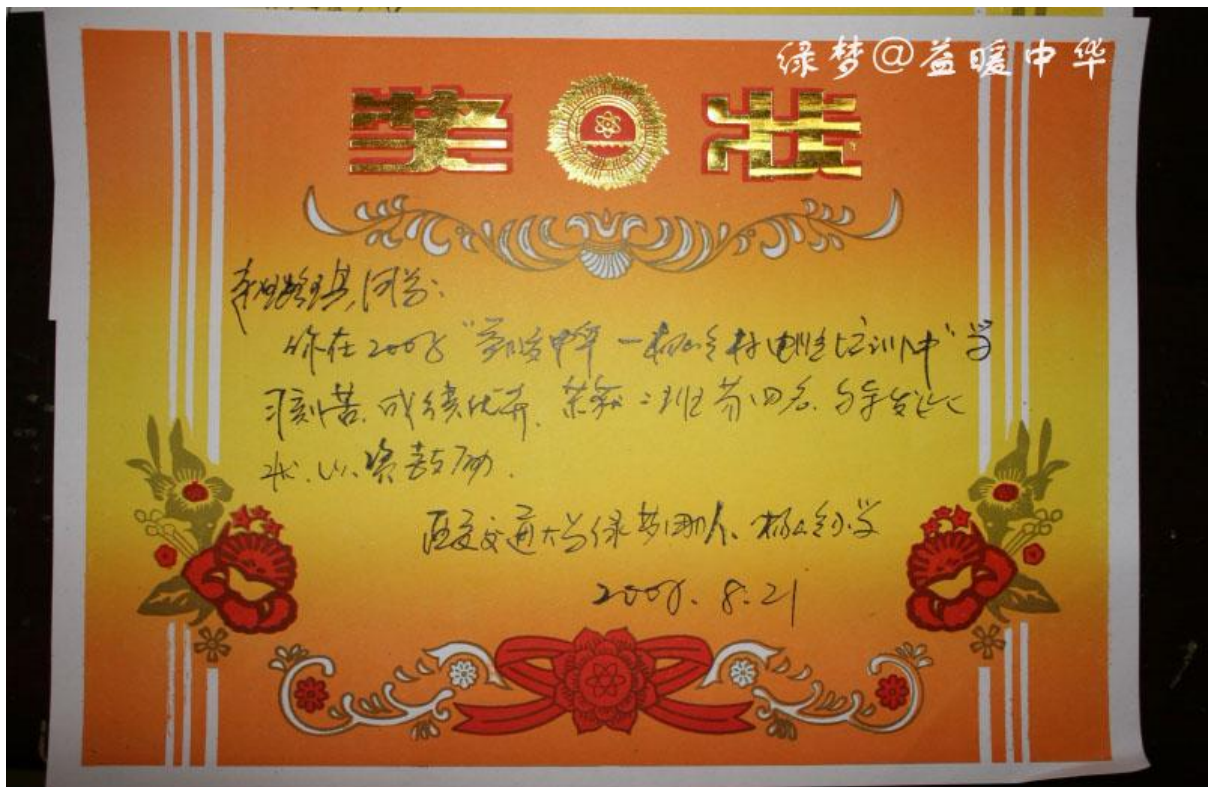 绿梦@益暖中华
奖状
同学:
你在2008"益暖中华一杨 乡村电脑培训中"学
习刻苦.成绩优异.荣获二班第四名.特发此
状.以资鼓励.
西安交通大学绿梦团队、杨 小学
2008.8.21